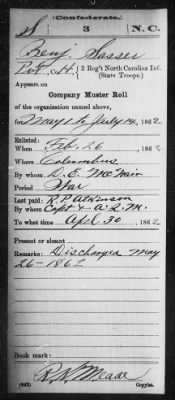 Confederate.
S 3 N.C.
Benj Sasser
Pvt, Co. H, 3 Reg't North Carolina Inf.
(State Troops.)
Appears on
Company Muster Roll
of the organization named above,
for May 1 to July 14, 1862.
Enlisted:
When Feb. 26, 1862
Where Columbus
By whom D. E. McNair
Period War
Last paid:
By whom R. P. Atkinson
Capt & A.Q.M.
To what time Apl. 30, 1862
Present or absent
Remarks: Discharged May
26 - 1862
Book mark:
R. N. Meade
(642) Copyist.